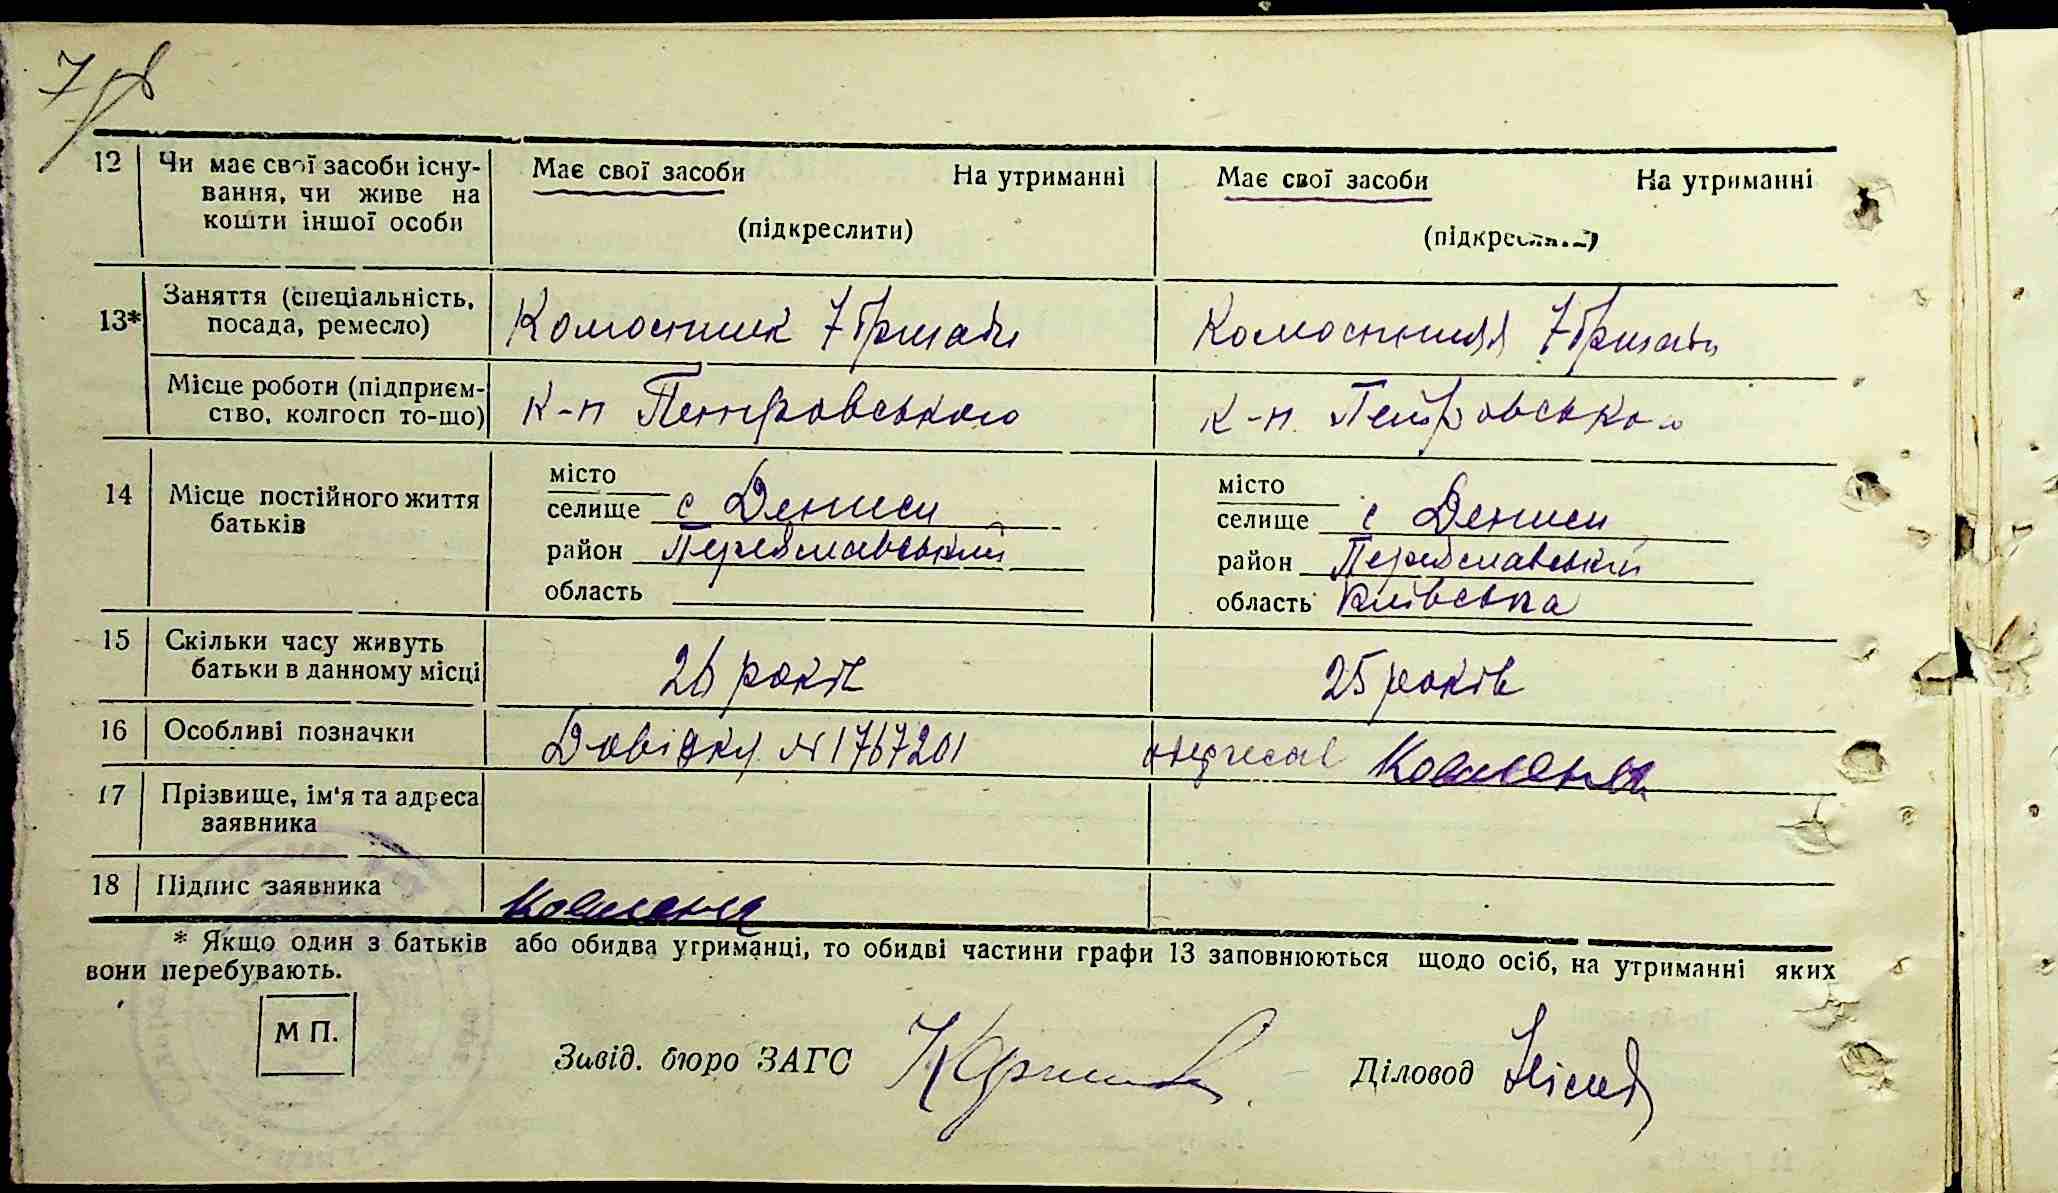 12 Чи має свої засоби існу-
вання, чи живе на
кошти іншої особи
Має свої засоби На утриманні
(підкреслити)
Має свої засоби На утриманні
(підкреслити)
13* Заняття (спеціальність,
посада, ремесло)
7 бригади
7 бригади
Місце роботи (підприєм-
ство, колгосп то-що)
к-п Петровського
к-п. Петровського
14 Місце постійного життя
батьків
місто
селище с Дениси
район Переяславський
область
місто
селище с Дениси
район Переяславський
область Київська
15 Скільки часу живуть
батьки в данному місці
26 років
25 років
16 Особливі позначки
Довідку №1767201
17 Прізвище, ім'я та адреса
заявника
18 Підпис заявника
* Якщо один з батьків або обидва утриманці, то обидві частини графи 13 заповнюються щодо осіб, на утриманні яких
вони перебувають.
М П.
Завід. бюро ЗАГС
Діловод